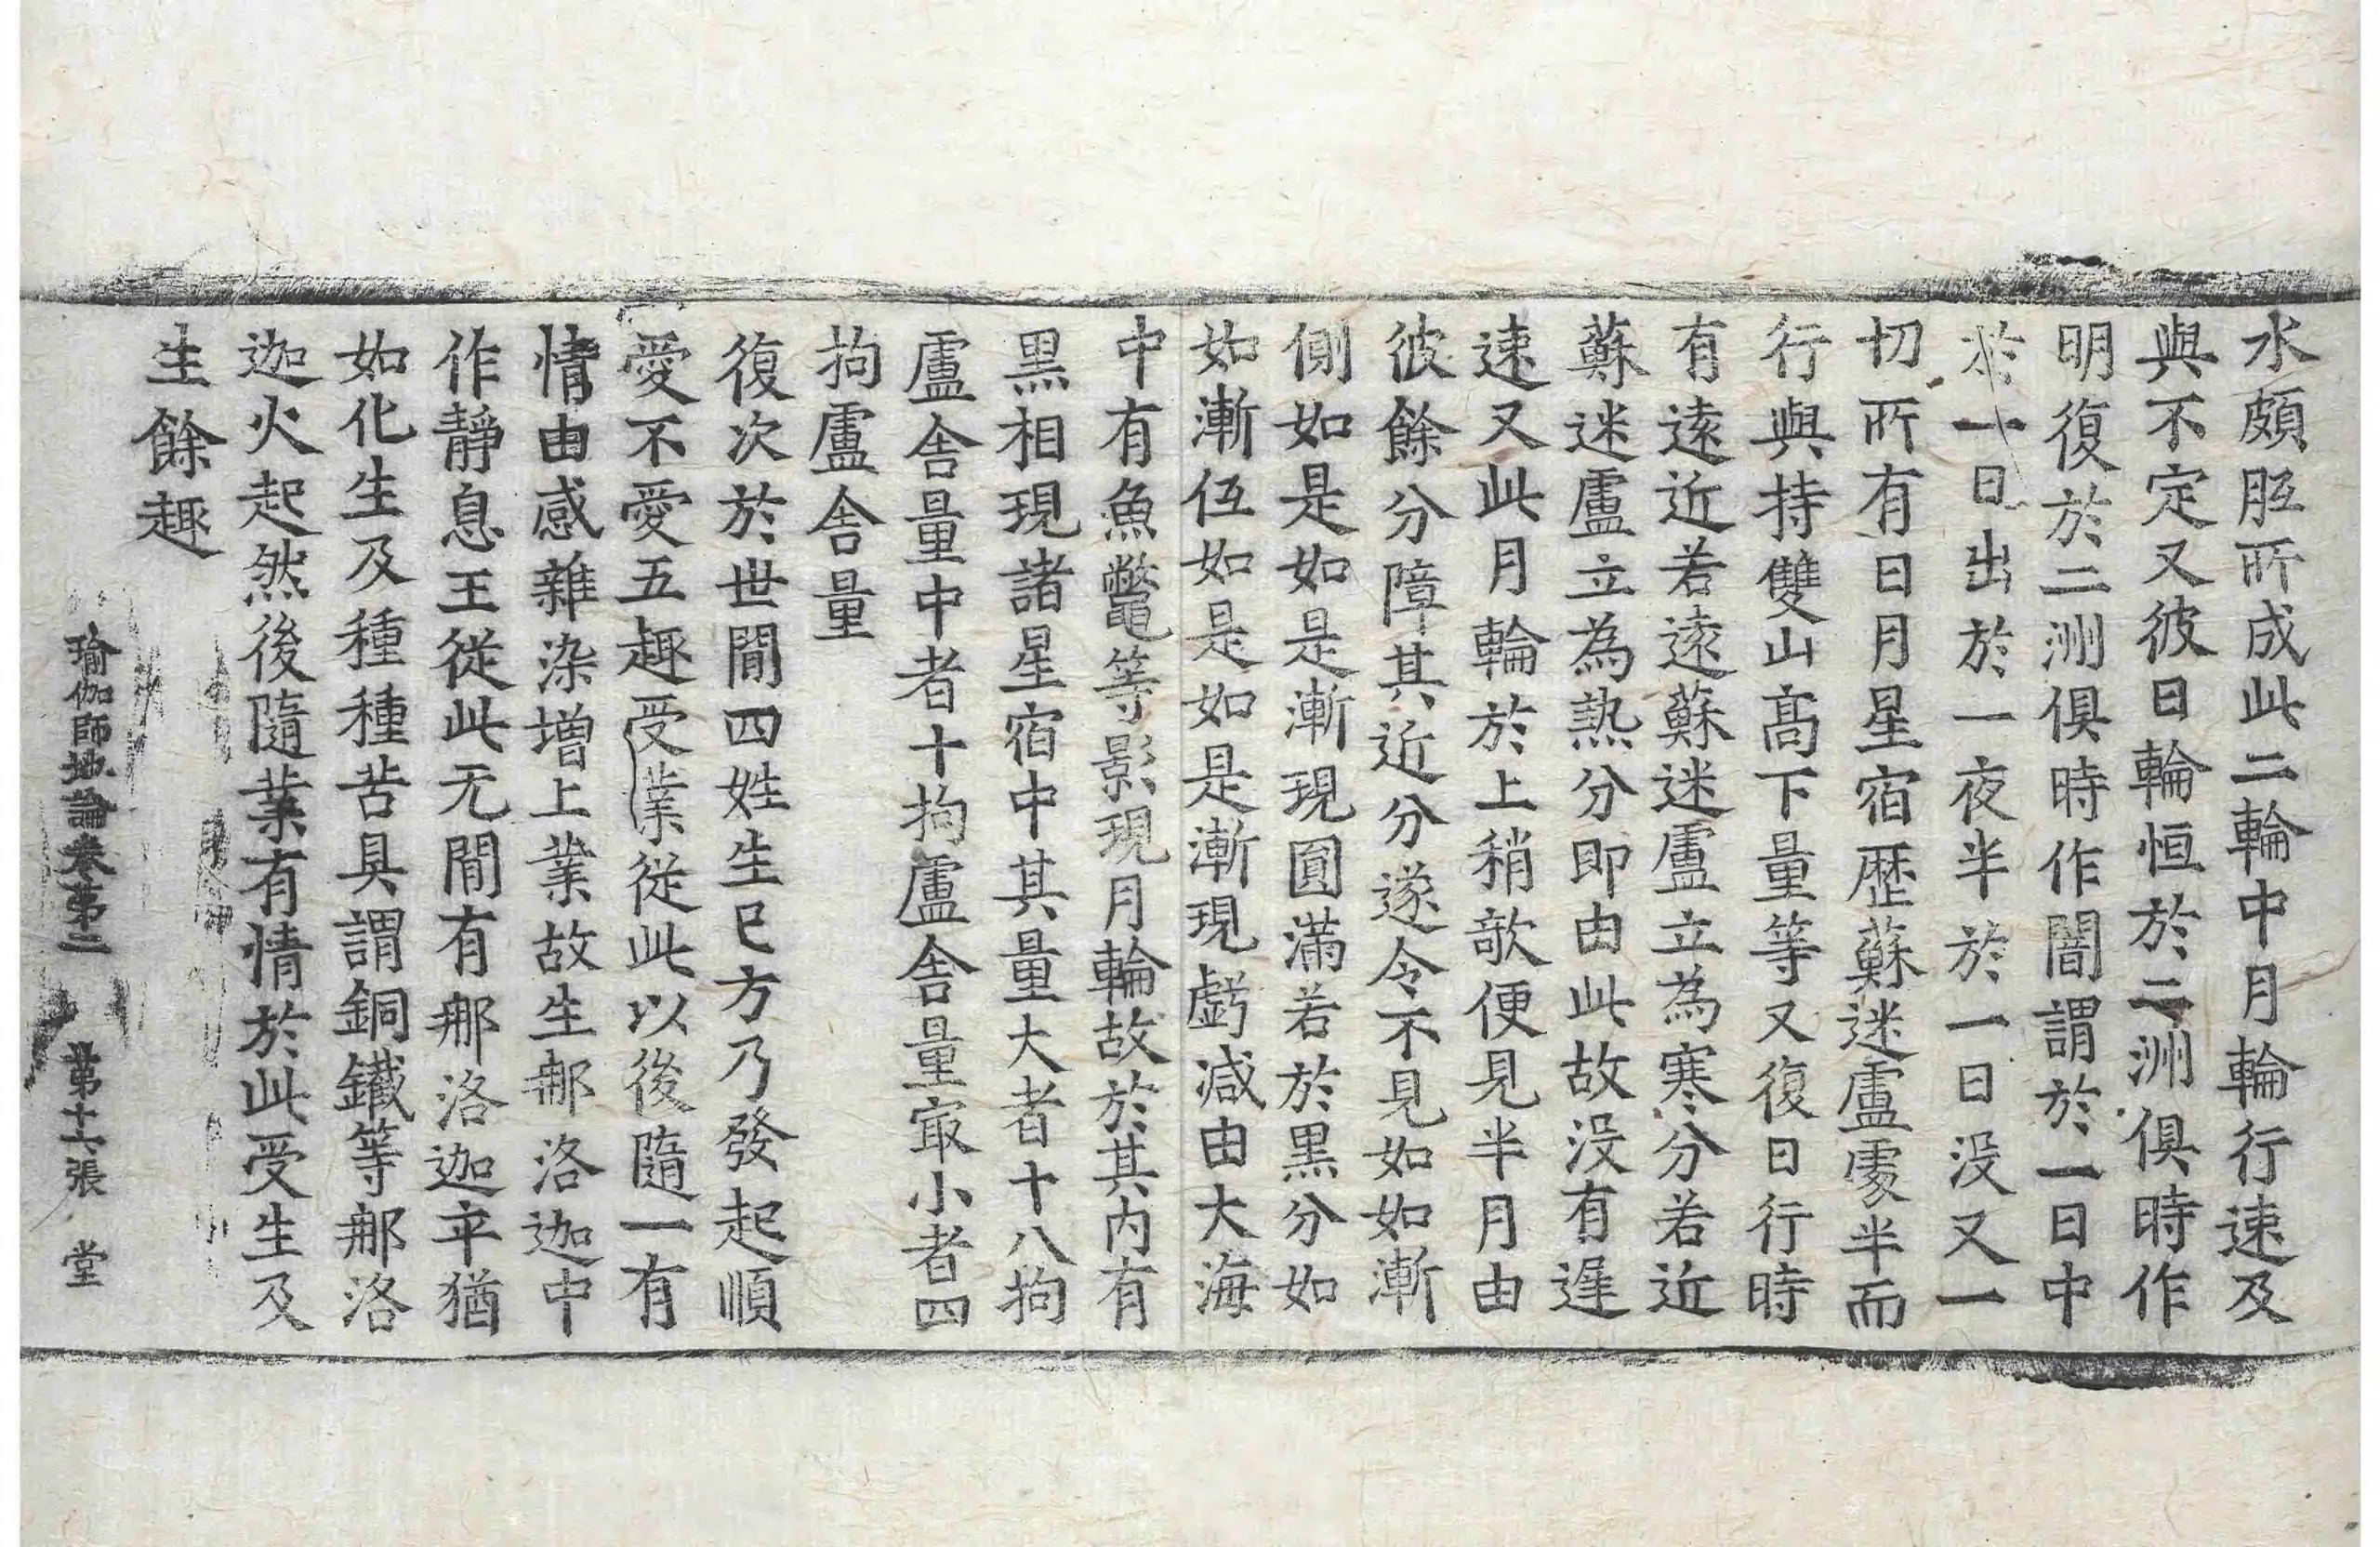 水頗胝所成此二輪中月輪行速及
與不定又彼日輪恒於二洲俱時作
明復於二洲俱時作闇謂於一日中
於一日出於一夜半於一日没又一
切所有日月星宿歷蘇迷盧處半而
行與持雙山高下量等又復日行時
有遠近若遠蘇迷盧立為寒分若近
蘇迷盧立為熱分即由此故没有遲
速又此月輪於上稍欹便見半月由
彼餘分障其近分遂令不見如如漸
側如是如是漸現圓滿若於黒分如
如漸伍如是如是漸現虧減由大海
中有魚鼈等影現月輪故於其内有
黒相現諸星宿中其量大者十八拘
盧舍量中者十拘盧舍量㝡小者四
拘盧舍量
復次於世間四姓生已方乃發起順
愛不愛五趣受業從此以後隨一有
情由感雜染增上業故生那洛迦中
作靜息王從此无間有那洛迦卒猶
如化生及種種苦具謂銅鐵等那洛
迦火起然後隨業有情於此受生及
生餘趣
瑜伽師地論卷第二 第十六張 堂